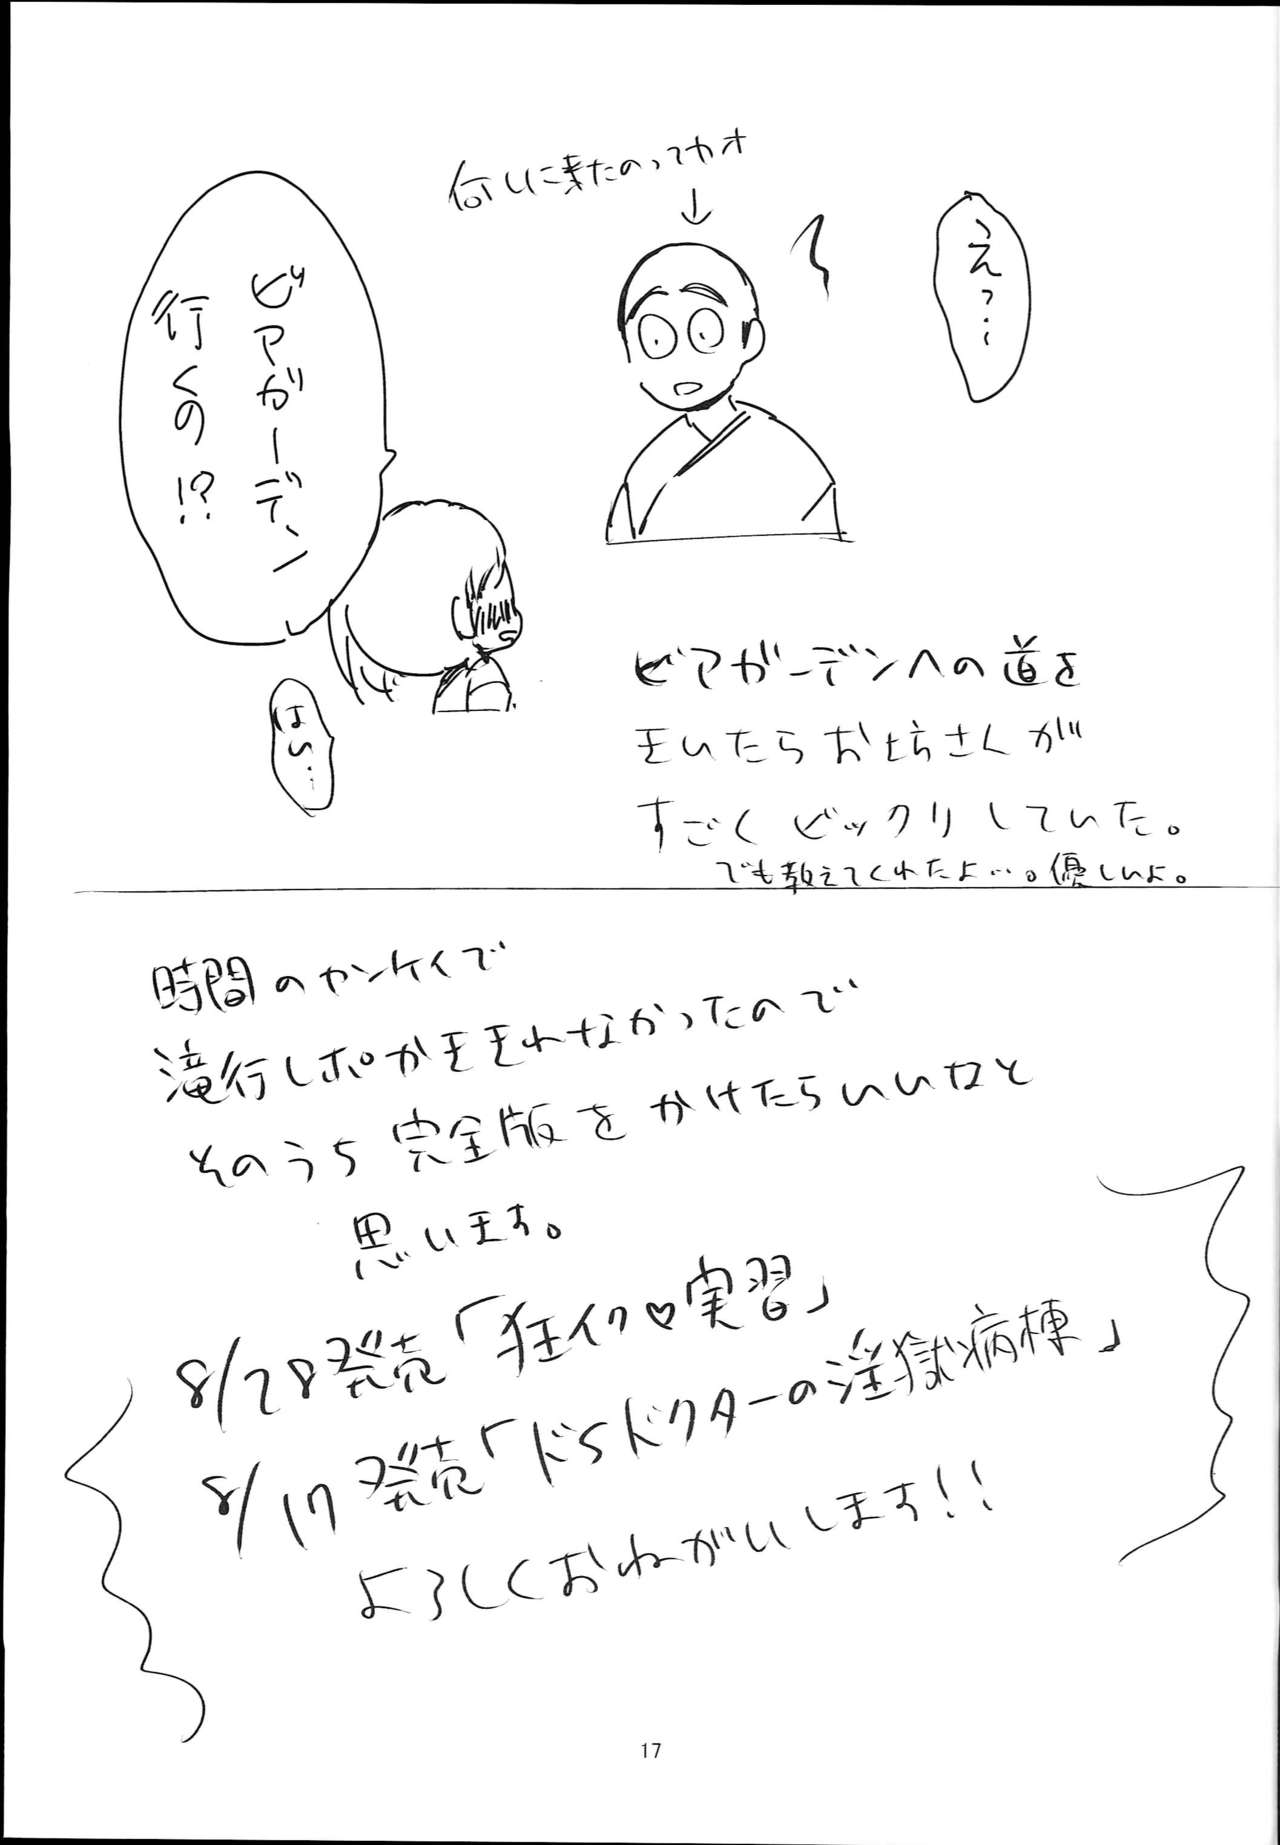 え?…
何しに来たのってカオ
ビアガーデン
行くの!?
はい…
ビアガーデンへの道を
きいたらお坊さんが
すごくビックリしていた。
でも教えてくれたよ…。優しいよ。
時間のカンケイで
滝行レポがききれなかったので
そのうち完全版をかけたらいいなと
思います。
8/28発売「狂イク♡実習」
8/17発売「ドSドクターの淫獄病棟」
よろしくおねがいします!!
17